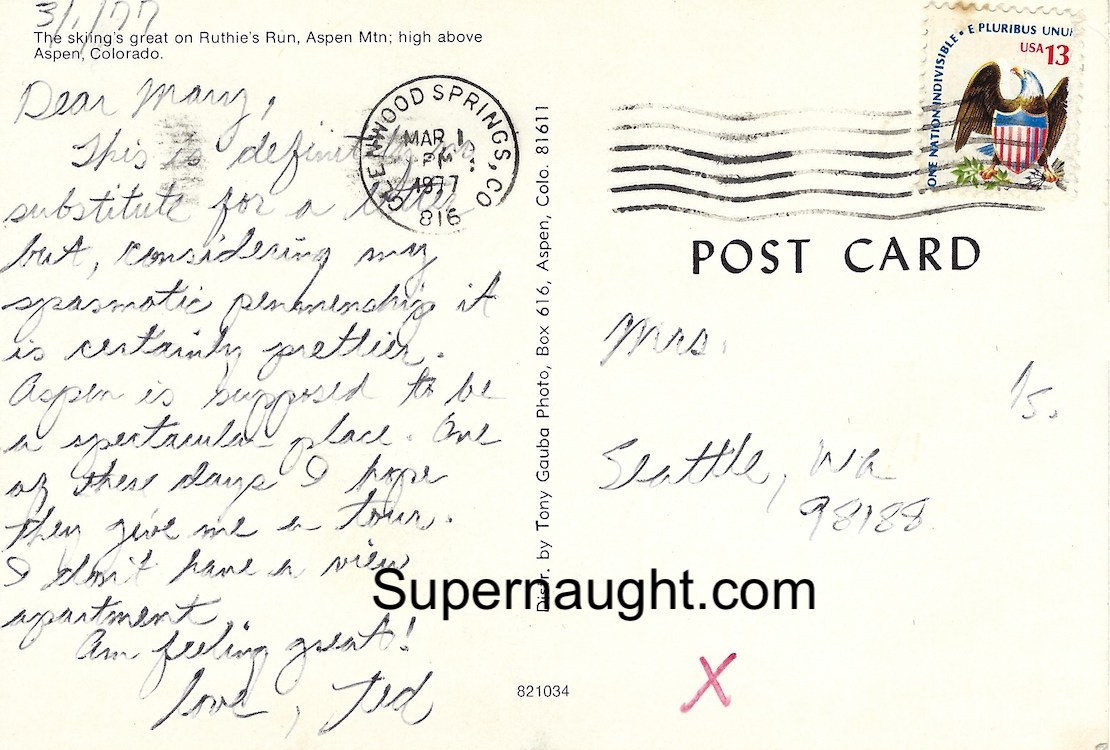 3/1/77
The skiing's great on Ruthie's Run, Aspen Mtn; high above
Aspen, Colorado.
Dear Mary,
This is definitely no
substitute for a letter
but, considering my
spasmotic penmenship it
is certainly prettier.
Aspen is supposed to be
a spectacular place. One
of these days I hope
they give me a tour.
I don't have a view
apartment
Am feeling great!
love, Ted
GLENWOOD SPRINGS, CO
MAR 1
PM
1977
816
Distr. by Tony Gauba Photo, Box 616, Aspen, Colo. 81611
ONE NATION INDIVISIBLE • E PLURIBUS UNU
USA 13
POST CARD
Mrs.
/5.
Seattle, Wa
98188
Supernaught.com
821034
X